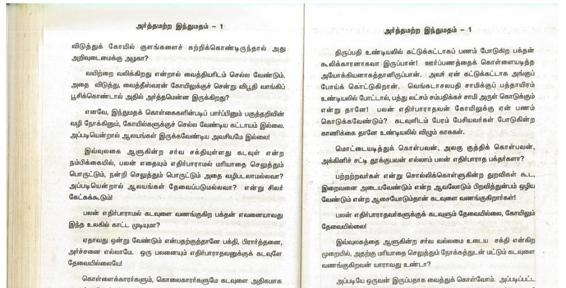 அர்த்தமற்ற இந்துமதம் – 1
விடுத்துக் கோயில் குளங்களைச் சுற்றிக்கொண்டிருந்தால் அது
அறிவுடைமைக்கு அழகா?
வயிற்றை வலிக்கிறது என்றால் வைத்தியரிடம் செல்ல வேண்டும்.
அதை விடுத்து, வைத்தீஸ்வரன் கோயிலுக்குச் சென்று விபூதி வாங்கிப்
பூசிக்கொண்டால் அதில் அர்த்தமென்ன இருக்கிறது?
எனவே, இந்துமதக் கொள்கைகளின்படிப் பார்ப்பினும் பகுத்தறிவின்
வழி நோக்கினும், கோயில்களுக்குச் செல்ல வேண்டிய கட்டாயம் இல்லை.
அப்படியென்றால் ஆலயங்கள் இருக்கவேண்டிய அவசியமே இல்லை!
இவ்வுலகை ஆளுகின்ற சர்வ சக்தியுள்ளது கடவுள் என்ற
நம்பிக்கையில், பலன் எதையும் எதிர்பாராமல் மரியாதை செலுத்தும்
பொருட்டும், நன்றி செலுத்தும் பொருட்டும் அதை வழிபடலாமல்லவா?
அப்படியென்றால் ஆலயங்கள் தேவைப்படுமல்லவா? என்று சிலர்
கேட்கக்கூடும்!
பலன் எதிர்பாராமல் கடவுளை வணங்குகிற பக்தன் எவனையாவது
இந்த உலகில் காட்ட முடியுமா?
ஏதாவது ஒன்று வேண்டும் என்பதற்குத்தானே பக்தி, பிரார்த்தனை,
அர்ச்சனை எல்லாமே. ஒரு பலனையும் எதிர்பாராதவனுக்குக் கடவுளே
தேவையில்லையே!
கொள்ளைக்காரர்களும், கொலைகாரர்களுமே கடவுளை அதிகமாக
அர்த்தமற்ற இந்துமதம் – 1
திருப்பதி உண்டியலில் கட்டுக்கட்டாகப் பணம் போடுகிற பக்தன்
கூலிக்காரனாகவா இருப்பான்! ஊர்ப்பணத்தைக் கொள்ளையடித்த
அயோக்கியனாகத்தானிருப்பான். அவர் ஏன் கட்டுக்கட்டாக அங்குப்
போய்க் கொட்டுகிறான். வெங்கடாசலபதி சாமிக்குப் பத்தாயிரம்
உண்டியலில் போட்டால், பத்து லட்சம் சம்பதிக்கச் சாமி அருள் கொடுக்கும்
என்று தானே! பலன் எதிர்பாராதவன் கோயிலுக்கு ஏன் பணம்
கொடுக்கவேண்டும்? கடவுளிடம் பேரம் பேசியவர்கள் போடுகின்ற
காணிக்கை தானே உண்டியலில் விழும் காசுகள்.
மொட்டையடித்துக் கொள்பவன், அலகு குத்திக் கொள்பவன்,
அக்கினிச் சட்டி தூக்குபவன் எல்லாம் பலன் எதிர்பாராத பக்தர்களா?
பற்றற்றவர்கள் என்று சொல்லிக்கொள்ளுகின்ற துறவிகள் கூட,
இறைவனை அடையவேண்டும் என்ற ஆவலோடும் பிறவித்துன்பம் ஒழிய
வேண்டும் என்ற ஆசையோடும்தான் கடவுளை வணங்குகிறார்கள்!
பலன் எதிர்பாராதவர்களுக்குக் கடவுளும் தேவையில்லை, கோயிலும்
தேவையில்லை!
இவ்வுலகத்தை ஆளுகின்ற சர்வ வல்லமை உடைய சக்தி என்கிற
முறையில், அதற்கு மரியாதை செலுத்தும் நோக்கத்துடன் மட்டும் கடவுளை
வணங்குகிறவன் யாராவது உண்டா?
அப்படியே ஒருவன் இருப்பதாக வைத்துக் கொள்வோம். அப்படிப்பட்ட